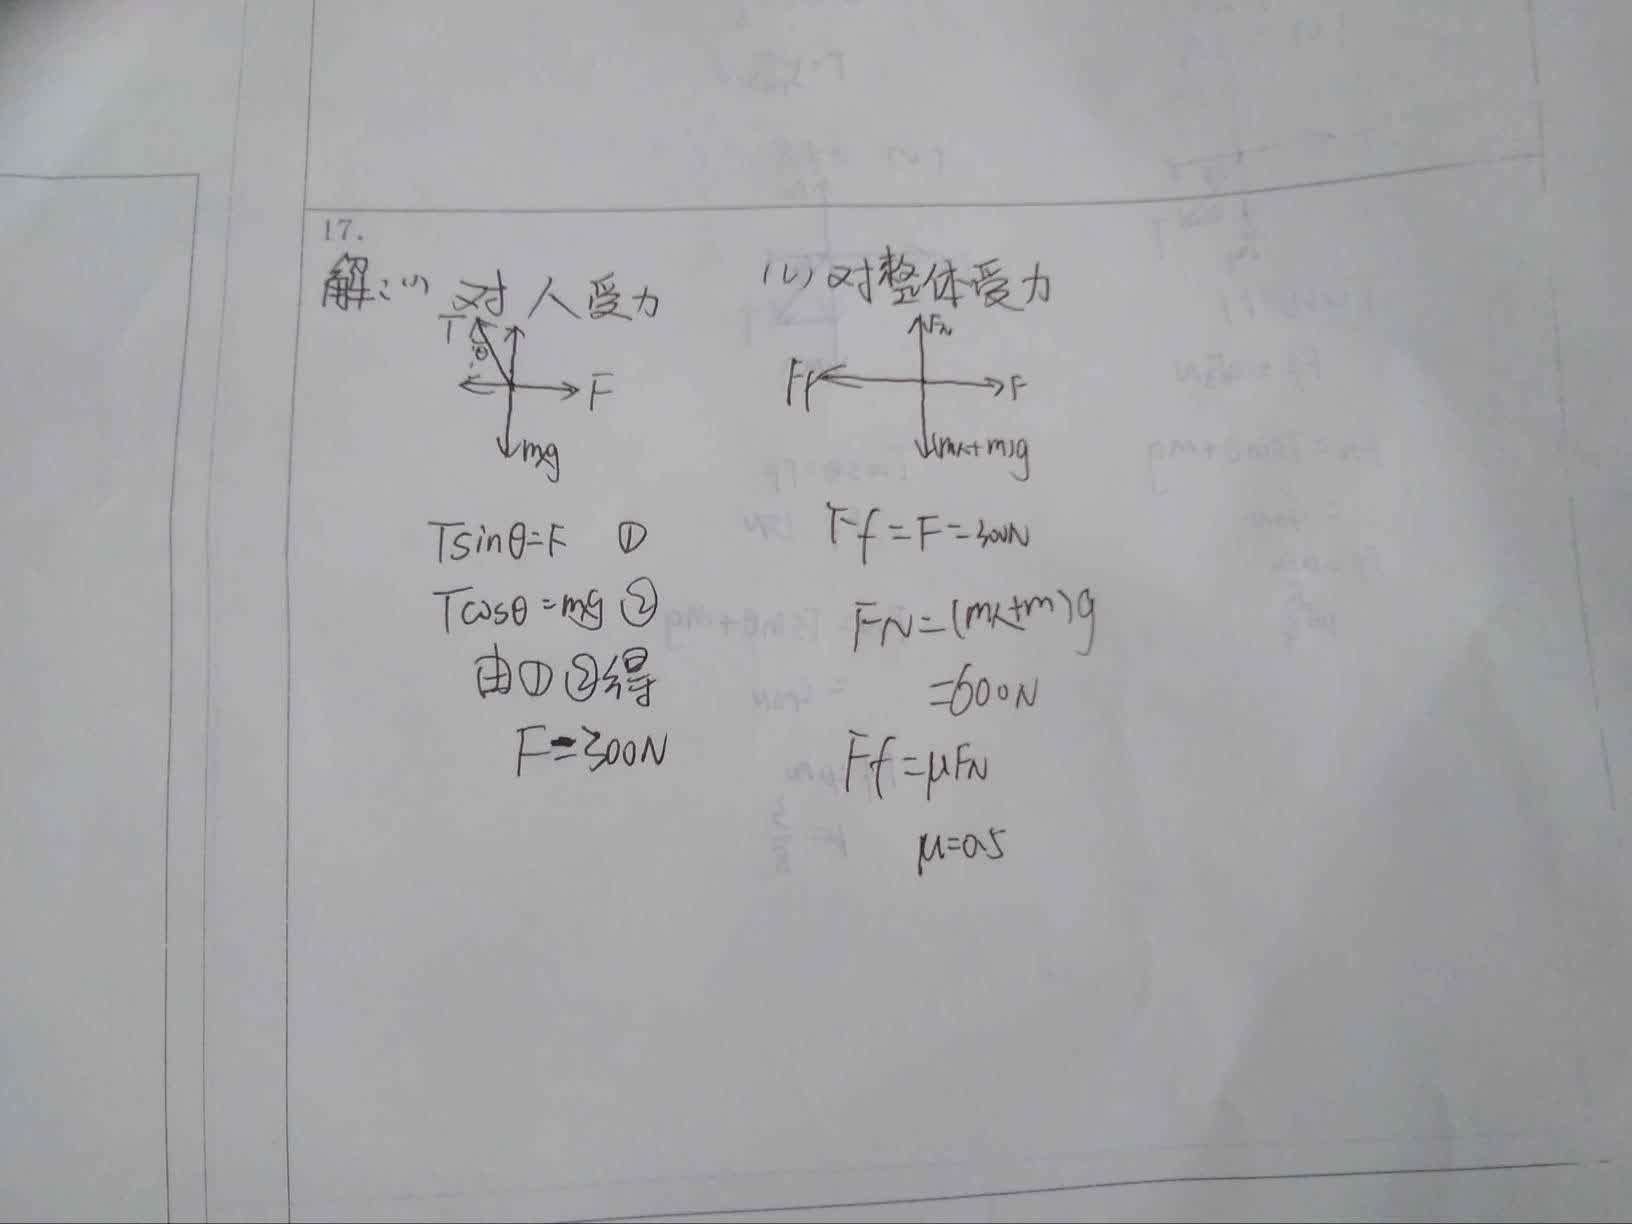 17.
解:(1) 对人受力
T
θ
F
mg
Tsinθ=F ①
Tcosθ=mg ②
由①②得
F=300N
(2) 对整体受力
FN
Ff
F
Ff=F=300N
=600N
Ff=μFN
μ=0.5